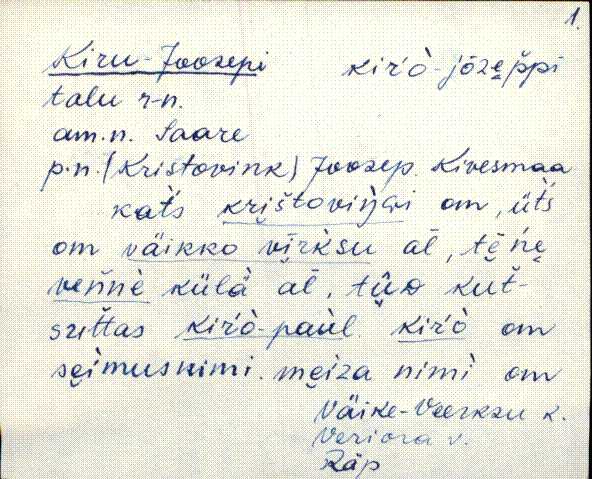 1.
Kiru-Joosepi kiŕò-jōze̮p̆pi
talu r-n.
am.n. Saare
p.n. (Kristovink) Joosep. Kivesmaa
kat̆s kri̮štoviŋ̀G̀i om, üt̆s
om väikko vi̮rksu al̄, tē̮ńe̮
veńnè külà al̄, tū̮o kut̆-
sut̆tas kiŕò-paùl. kiŕò om
se̮ìmusnimi. me̮iza nimì om
Väike-Veerksu k.
Veriora v.
Räp